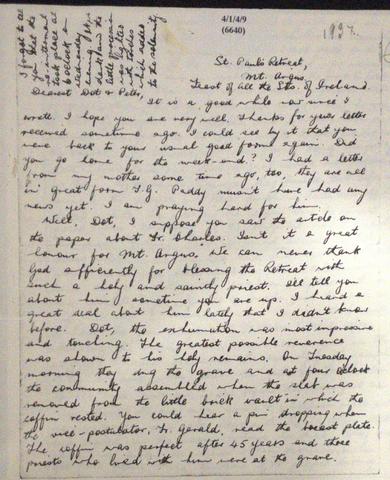 4/1/4/9
(6640)
1937.
I forgot to tell
you that the
re-interment
took place at
8 o'clock on
Wednesday
evening & it was
dark and the
little procession
was lighter
with torches
which added
to the solemnity.
St. Paul's Retreat,
Mt. Argus,
Feast of all the Sts. of Ireland.
Dearest Dot & Peter,
It is a good while now since I
wrote. I hope you are very well. Thanks for your letter
received sometime ago. I could see by it that you
were back to your usual good form again. Did
you go home for the week-end? I had a letter
from my mother some time ago, too, they are all
in great form T.G. Paddy mustn't have had any
news yet. I am praying hard for him.
Well, Dot, I suppose you saw the article on
the paper about Fr. Charles. Isn't it a great
honour for Mt. Argus. We can never thank
God sufficiently for blessing the Retreat with
such a holy and saintly priest. I'll tell you
about him sometime you are up. I heard a
great deal about him lately that I didn't know
before. Dot, the exhumation was most impressive
and touching. The greatest possible reverence
was shown to his holy remains. On Tuesday
morning they dug the grave and at four o'clock
the community assembled when the slab was
removed from the little brick vault in which the
coffin rested. You could hear a pin dropping when
the vice-postulator, Fr. Gerald, read the breast plate.
The coffin was perfect after 45 years and those
priests who lived with him were at the grave.